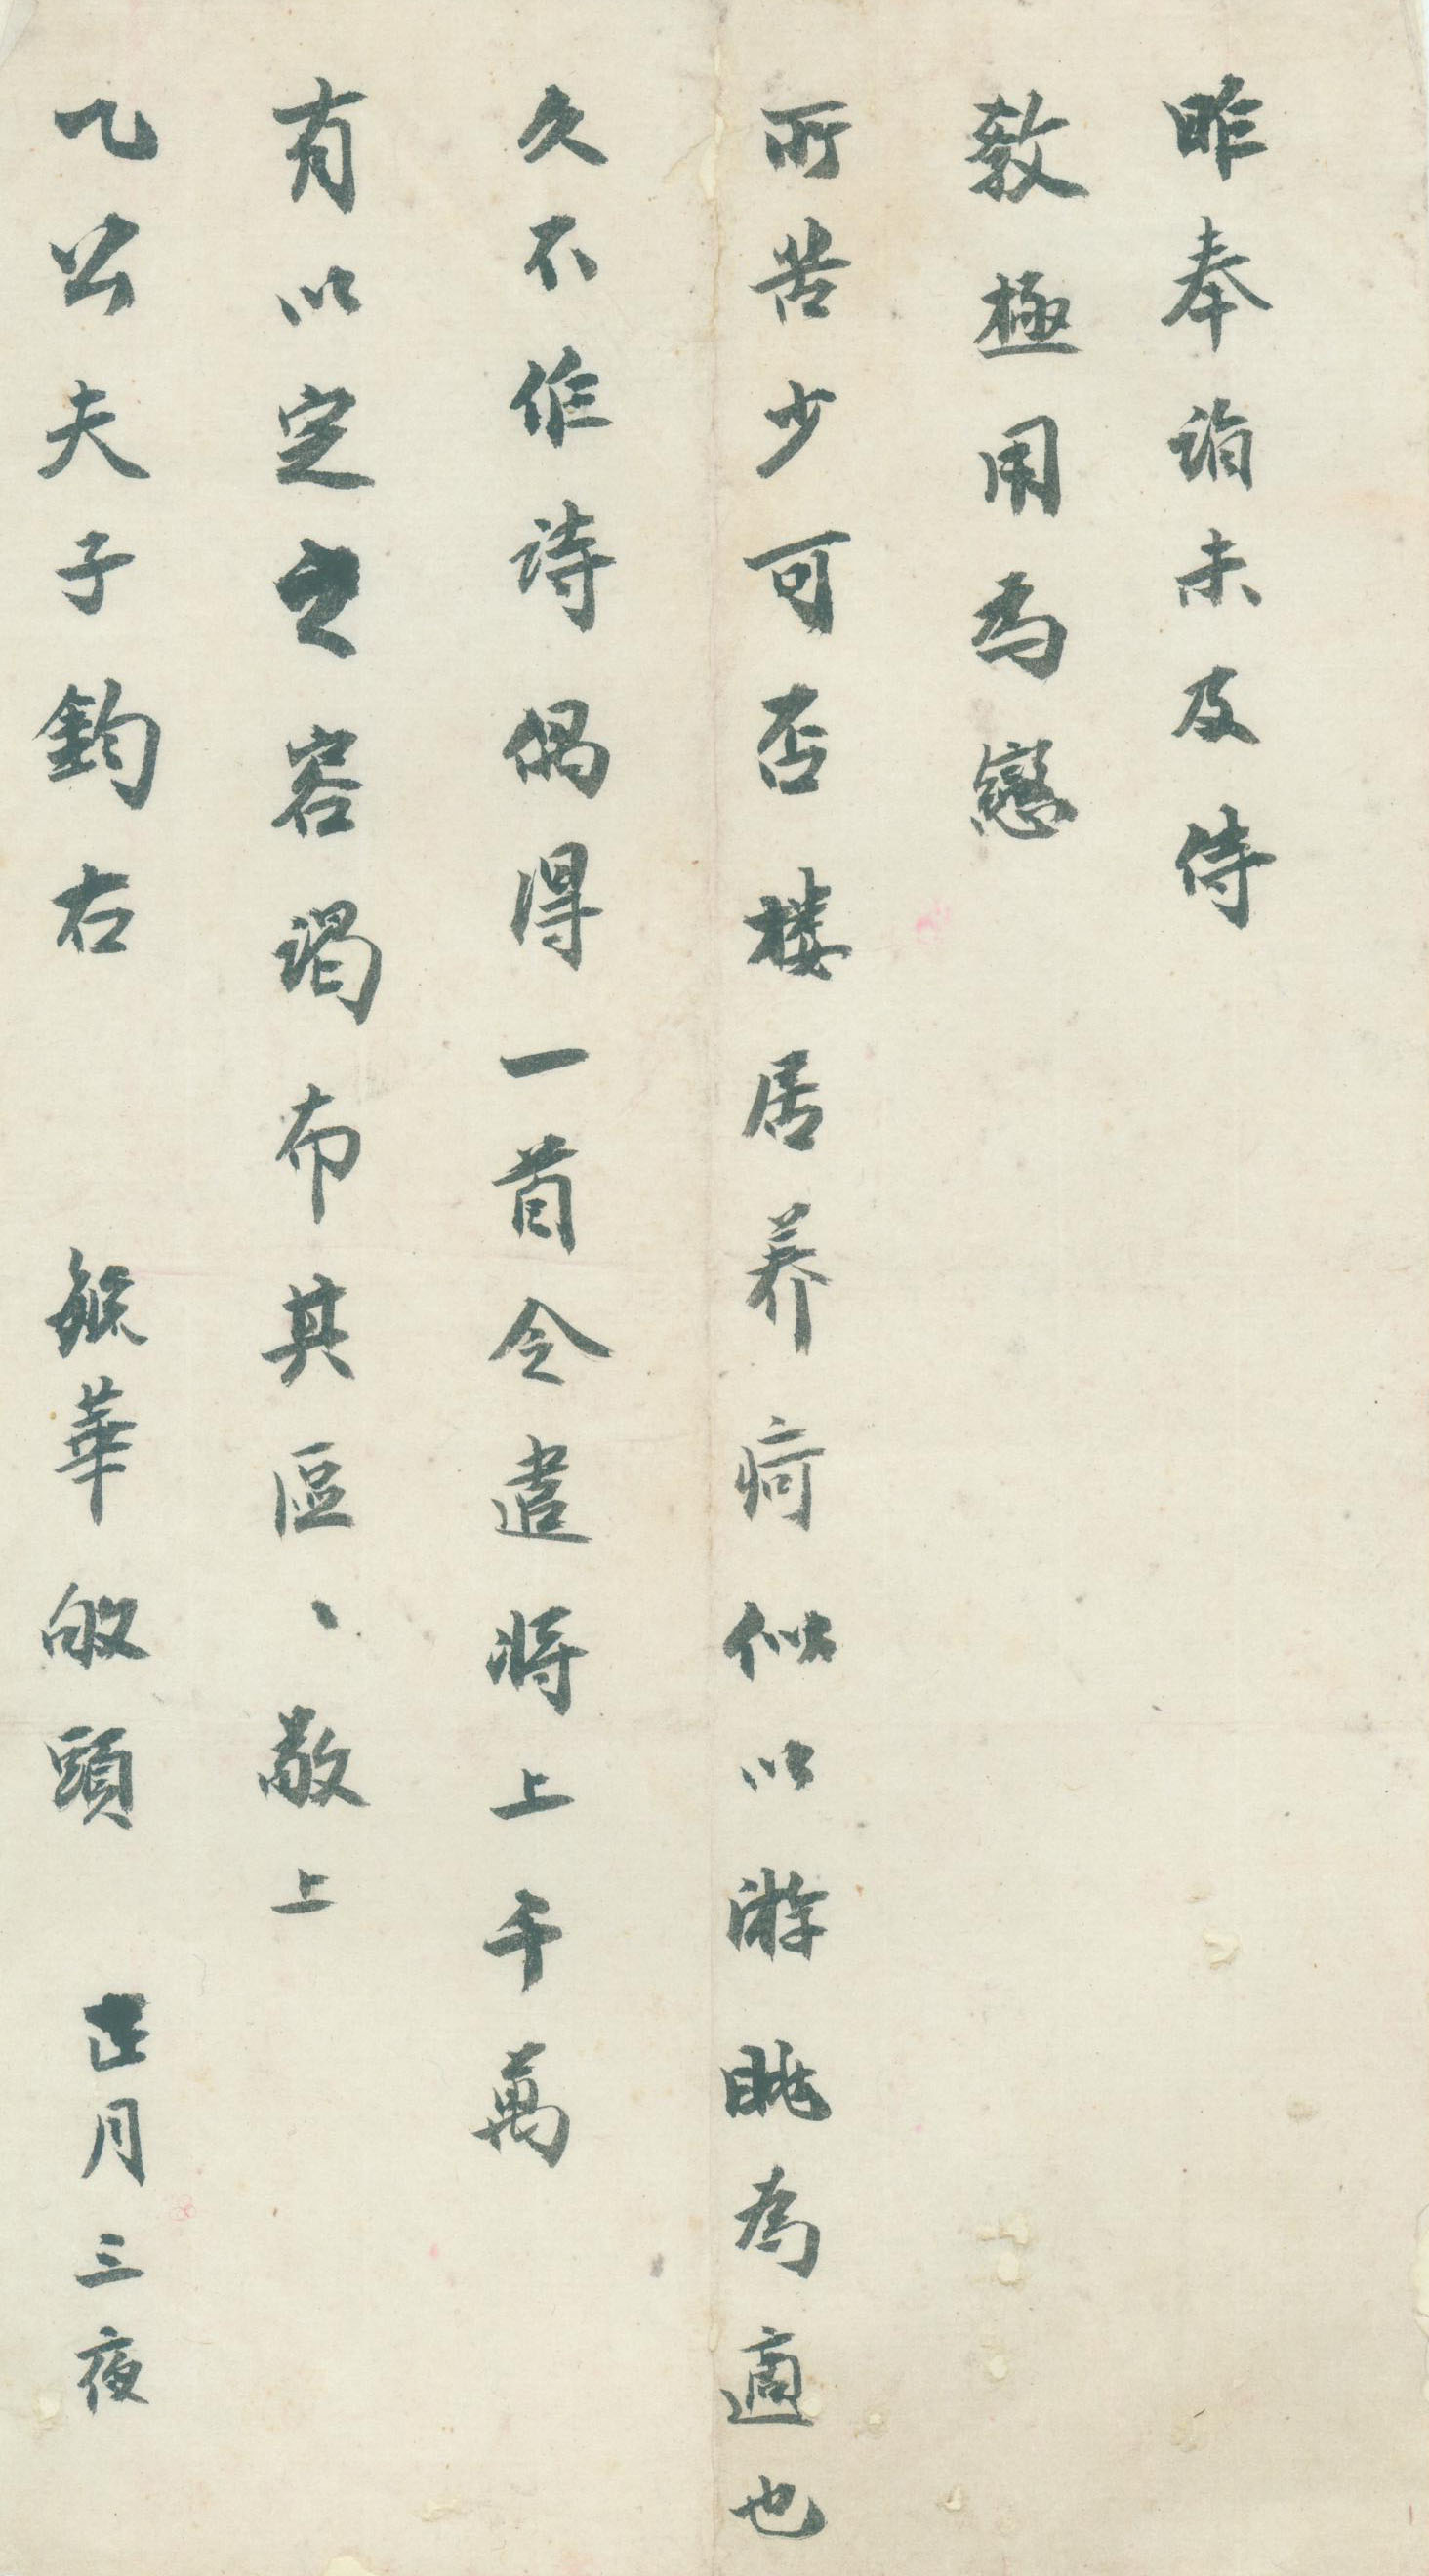 昨奉詣未及侍
敎極用為戀
所苦少可否樓居养疴似以游眺為適也
久不作詩偶得一首令遣將上千萬
有以定之容謁布其區、敬上
乙公夫子鈞右　毓華頓頭　正月三夜